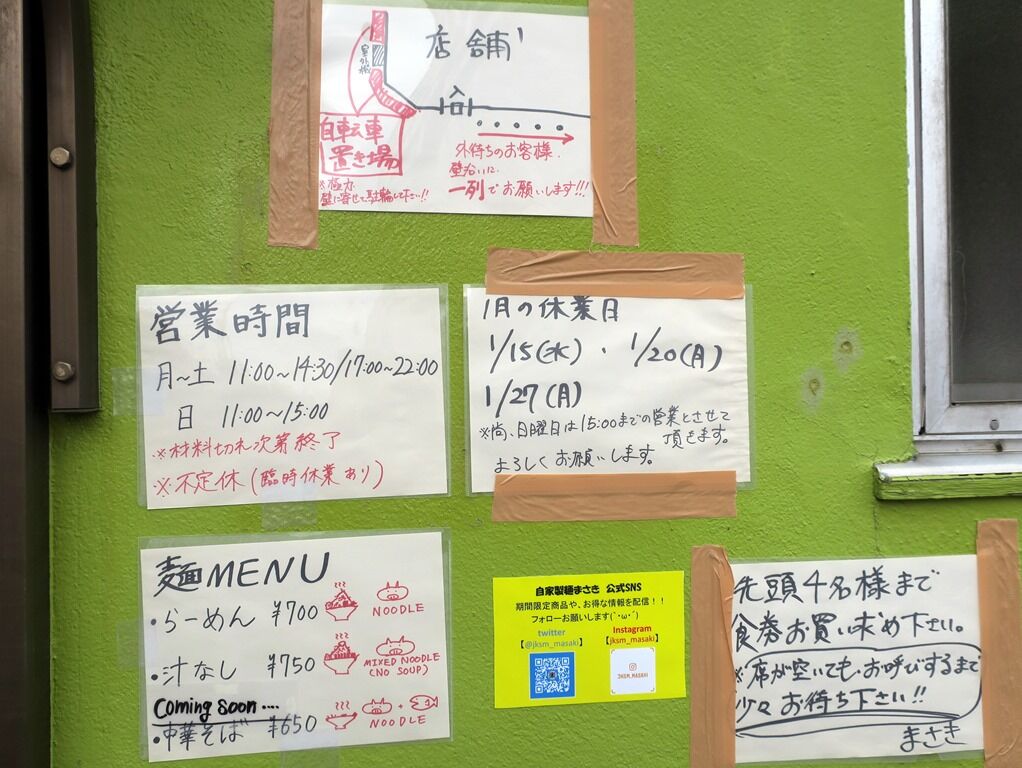 店舗
室外機
入口
自転車
置き場
※極力
壁に寄せて駐輪して下さい!!
外待ちのお客様.
壁沿いに
一列でお願いします!!!
営業時間
月~土 11:00~14:30/17:00~22:00
日 11:00~15:00
※材料切れ次第終了
※不定休(臨時休業あり)
1月の休業日
1/15(水)・1/20(月)
1/27(月)
※尚、日曜日は15:00までの営業とさせて
頂きます。
よろしくお願いします。
麺MENU
・らーめん ¥700
NOODLE
・汁なし ¥750
MIXED NOODLE
(NO SOUP)
Coming soon....
・中華そば ¥650
+
NOODLE
自家製麺まさき 公式SNS
期間限定商品や、お得な情報を配信!!
フォローお願いします(`・ω・´)
twitter
【@jksm_masaki】
Instagram
【jksm_masaki】
JKSM_MASAKI
先頭4名様まで
食券お買い求め下さい。
※席が空いても、お呼びするまで
少々お待ち下さい!!
まさき